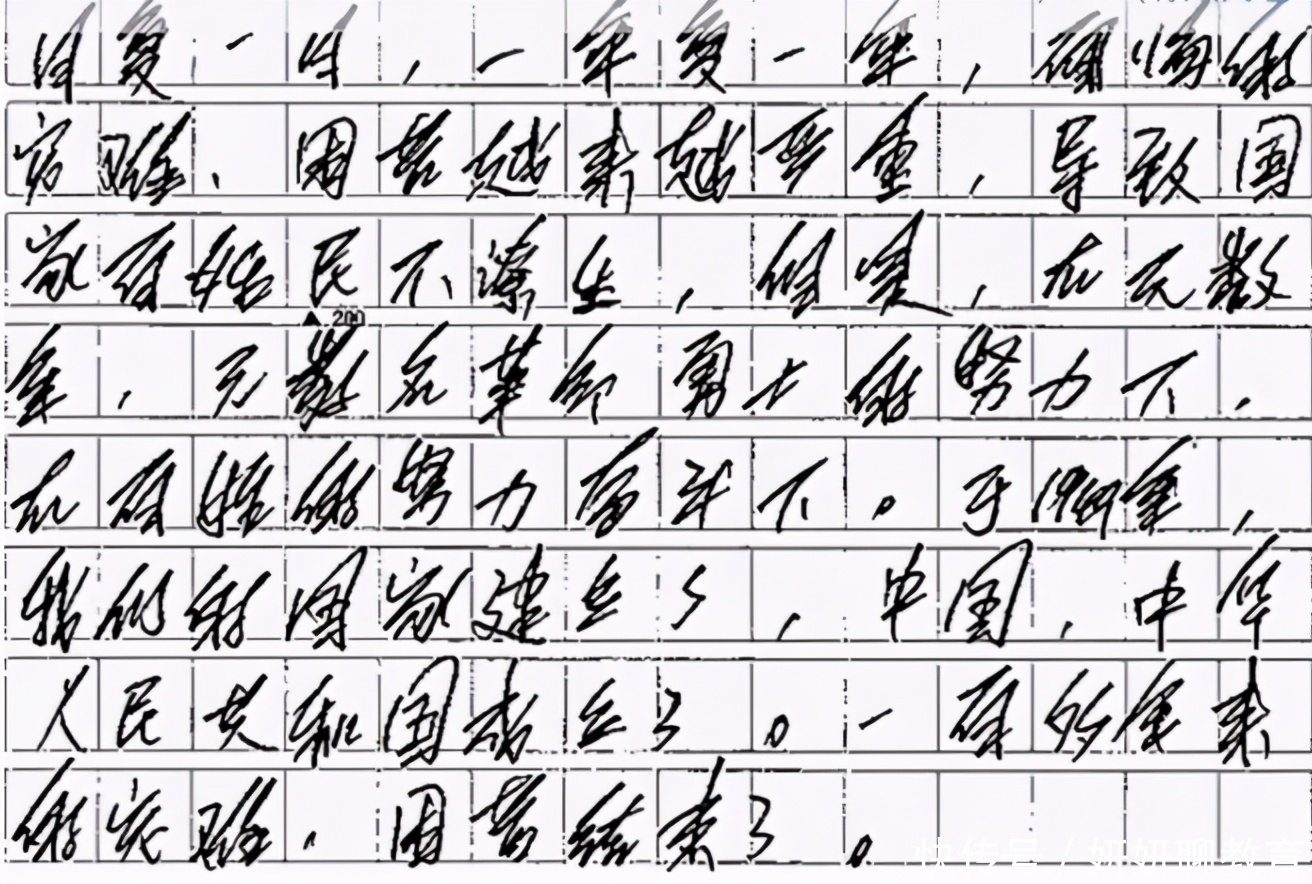 日复一日,一年复一年,碰悔的
灾难、困苦越来越严重,导致国
家百姓民不潦生,但是,在无数
年,无数名革命勇士的努力下,
在百姓的努力奋斗下。于1949年,
我们的国家建立了,中国,中华
人民共和国成立了。一百多年来
的灾难、困苦结束了。
▲ 200
快传号 / 妍妍聊教育